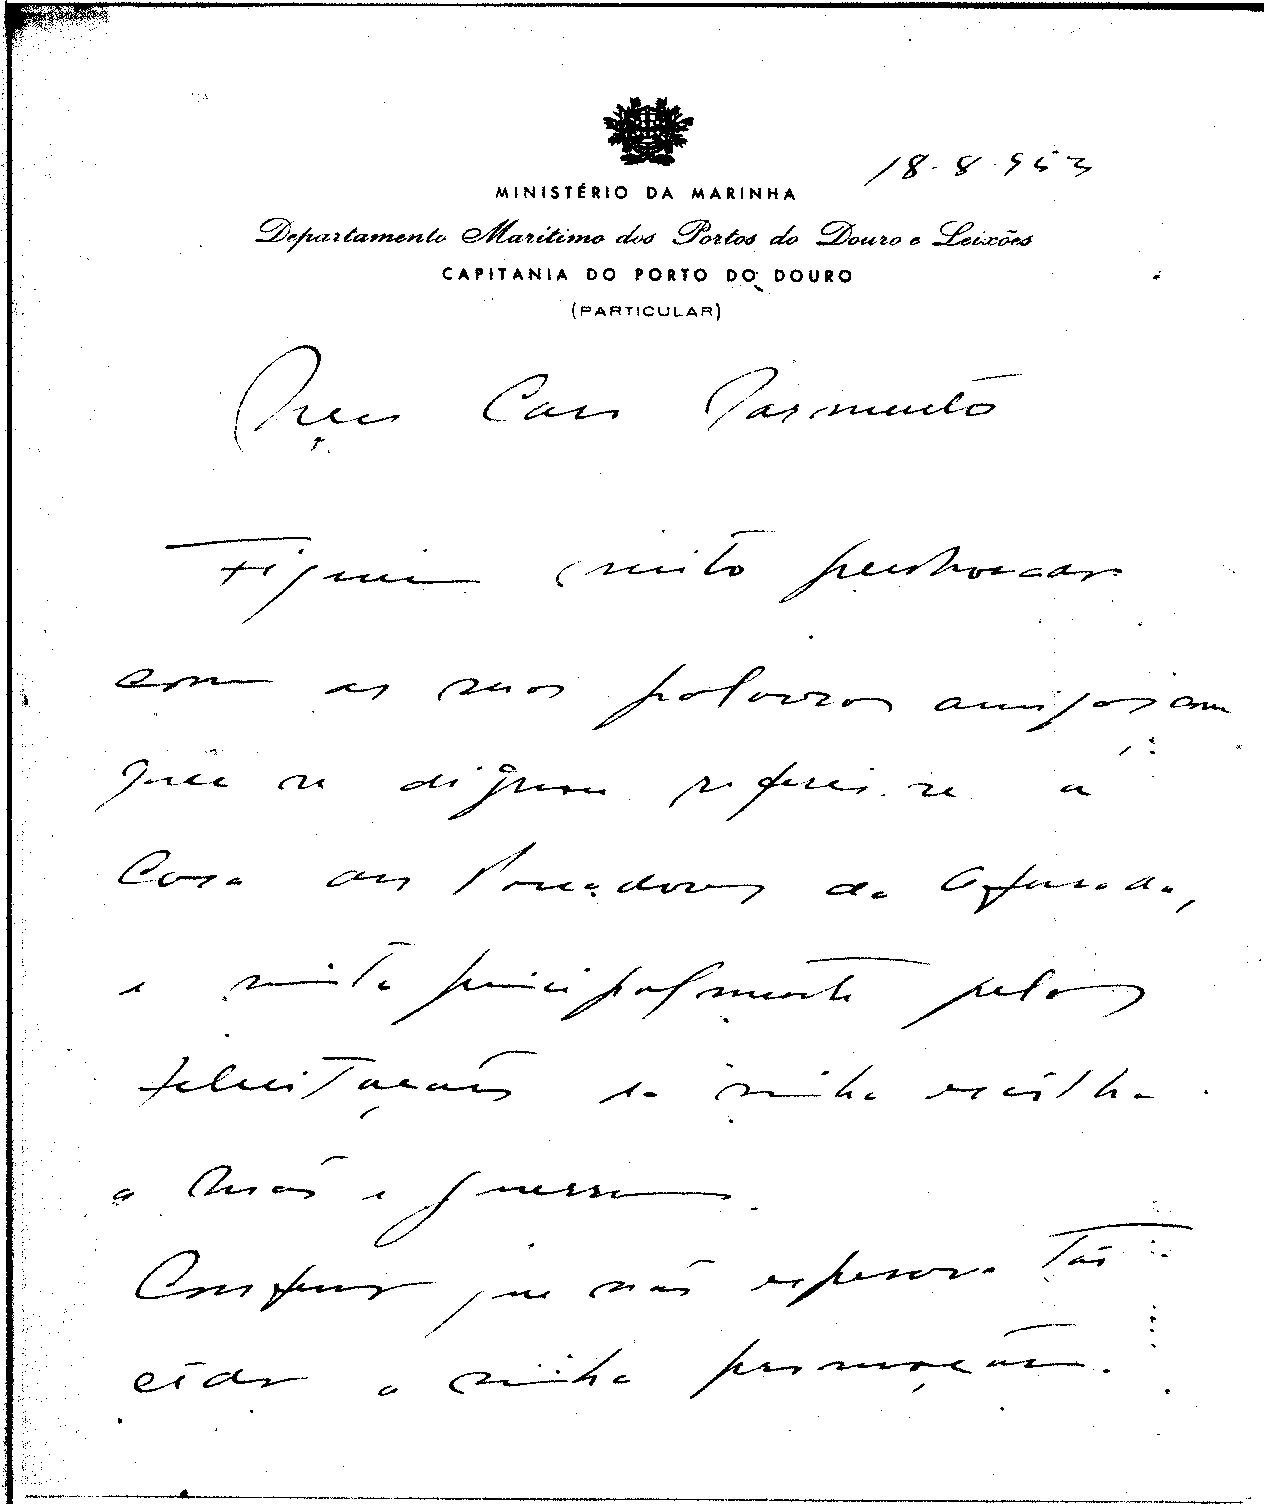 18-8-953
MINISTÉRIO DA MARINHA
Departamento Marítimo dos Portos do Douro e Leixões
CAPITANIA DO PORTO DO DOURO
(PARTICULAR)
Meu Caro Sarmento
Fiquei muito penhorado
com as suas palavras amigas com
que se dignou referir-se à
Casa dos Pescadores da Afurada,
e muito principalmente pelas
felicitações da minha escolha
a Mar e Guerra.
Confesso que não esperava tão
cêdo a minha promoção.